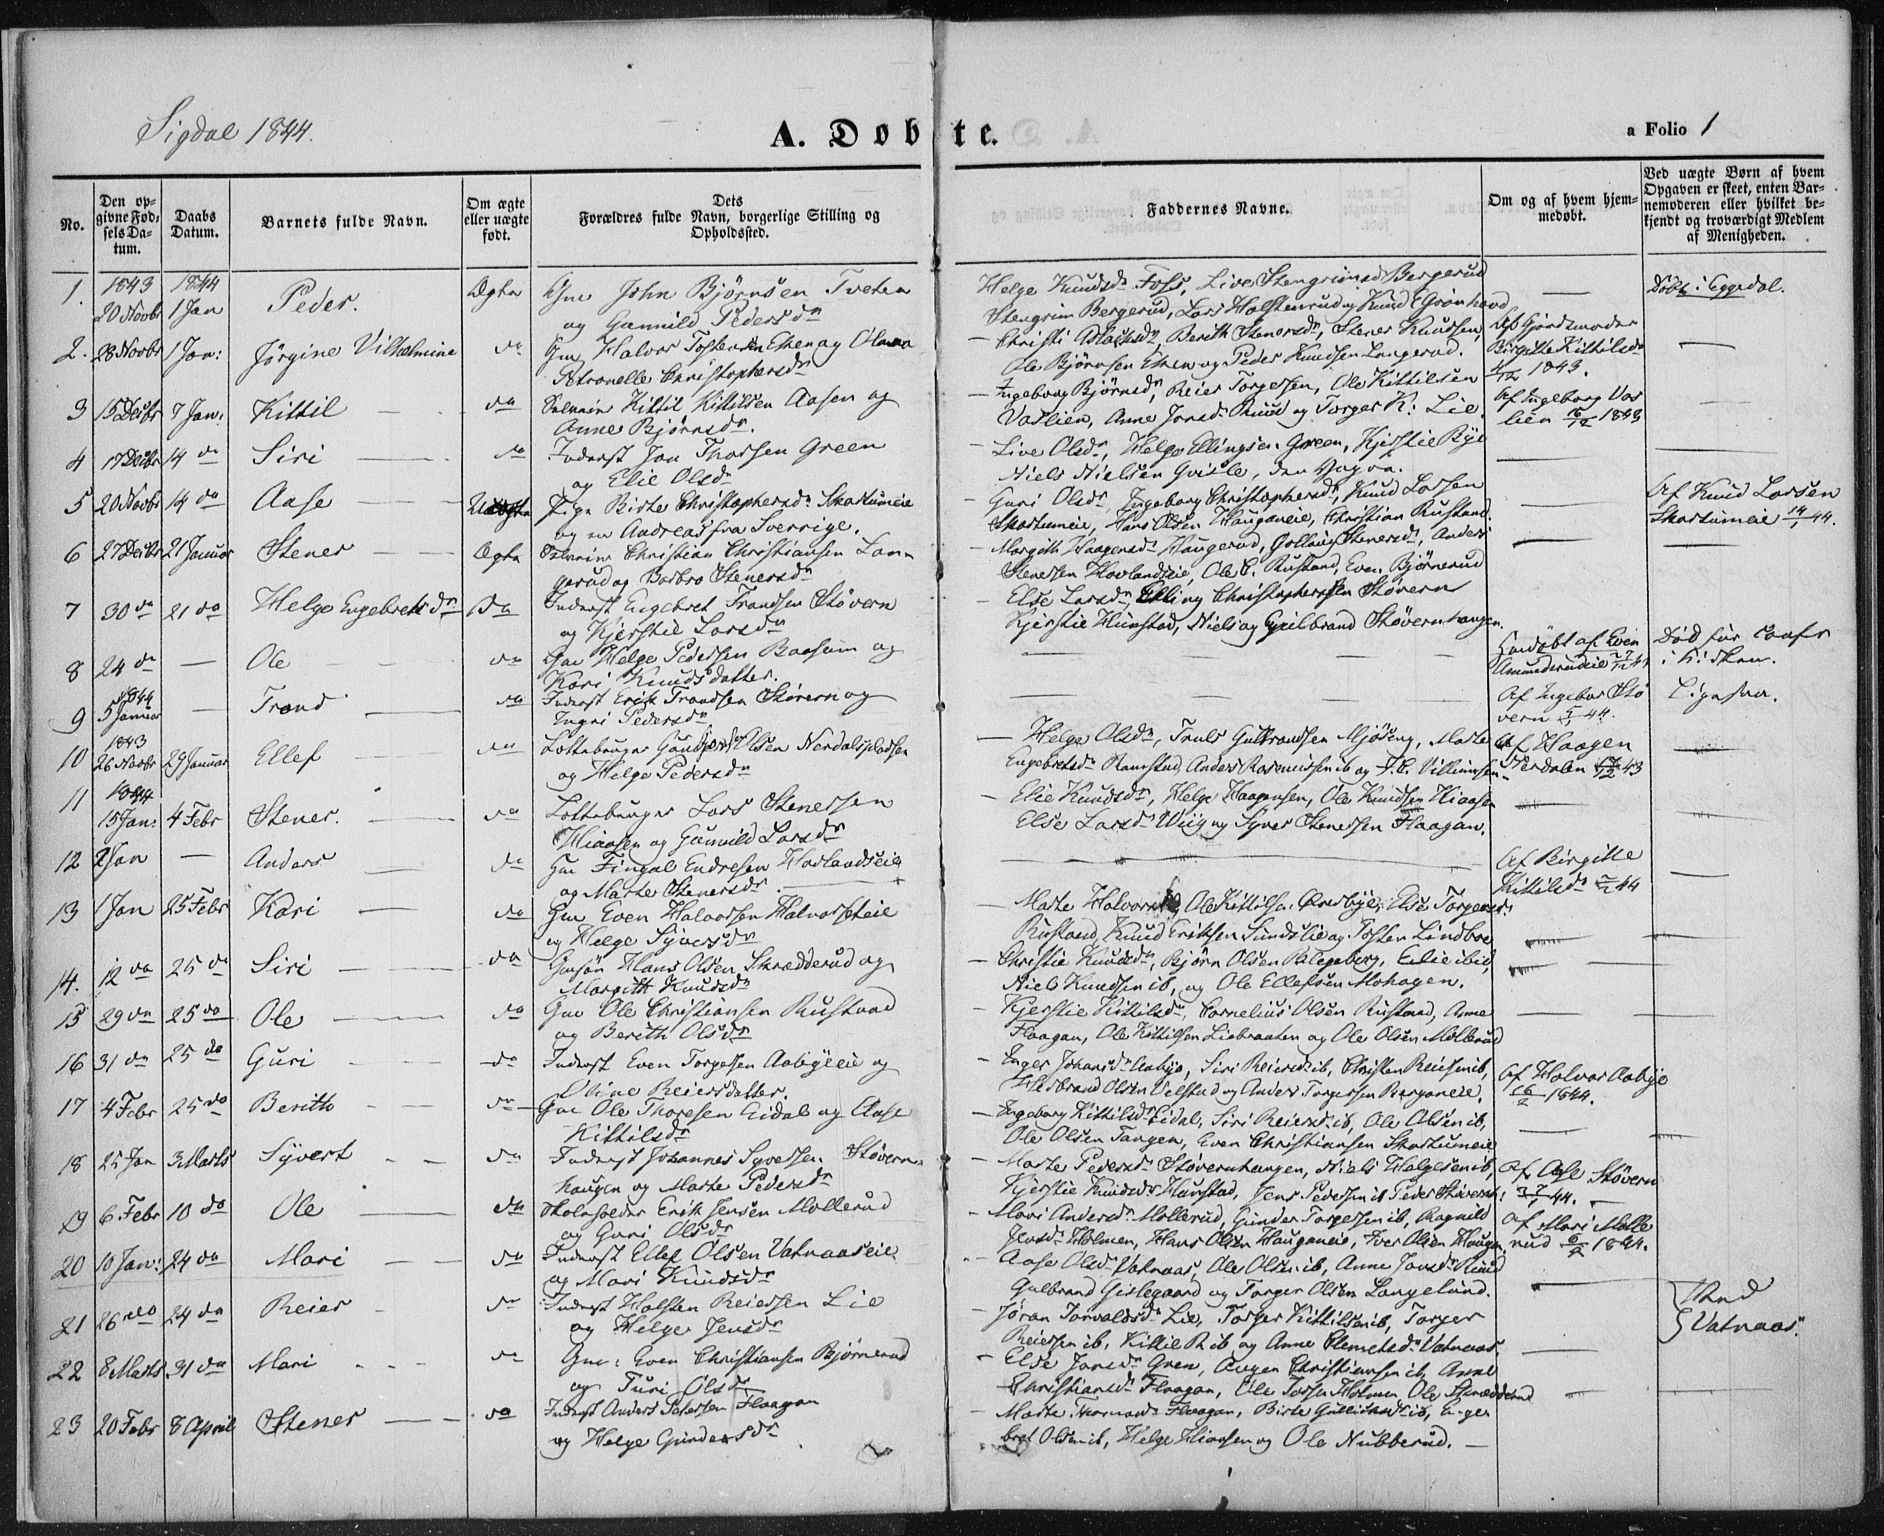 Sigdal 1844.
A. Døbte.
a Folio 1
No.
Den opgivne Fødselsdatum.
Daabs Datum.
Barnets fulde Navn.
Om ægte eller uægte født.
Dets Forældres fulde Navn, borgerlige Stilling og Opholdssted.
Faddernes Navne.
Om og af hvem hjemmedøbt.
Ved uægte Børn af hvem Opgaven er skeet, enten Barnemoderen eller hvilket bekjendt og troværdigt Medlem af Menigheden.
1. 1843 20 Novbr 1844 1 Jan Peder. Ægte Gme John Bjørnsen Tveten
og Gunnild Pedersdr
Helge Knudsdr Foss, Live Stengrimsdr Bergerud
Stengrim Bergerud, Lars Holstenrud og Knud Grønhovd
— Døbt i Eggedal.
2. 28 Novbr 1 Jan: Jørgine Vilhelmine do Gme Halvor Tostensen Eken og Olava
Petronelle Christophersdr
Christi Olsdr, Berith Stenersdr, Stener Knudsen,
Ole Bjørnsen Eken og Peder Knudsen Langerud.
Af Gjordemoder
Birgitte Kittilsdr
1843.
3 15 Decbr 7 Jan: Kittil do Selveier Kittil Kittilsen Aasen og
Anne Bjørnsdr.
Ingeborg Bjørnsdr, Reier Torgersen, Ole Kittilsen
Vaslien, Anne Jonsdr Ruud og Torger K: Lie.
Af Ingeborg Vas
lien 16/12 1843
4 17 Decbr 14 do Siri do Inderst Jan Thorsen Green
og Elie Olsdr
Live Olsdr, Helge Ellingsen Green, Kjerstie Bye
Niels Nielsen Gvisle, den Yngre.
5 20 Novbr 14 do Aase Uægte Pige Birte Christophersdr Skartumeie
og en Andreas fra Sverrige.
Guri Olsdr, Ingeborg Christophersdr, Knud Larsen
Skartumeie, Hans Olsen Hauganeie, Christian Rustand.
Af Knud Larsen
Skartumeie 14/1 44.
6 27 Decbr 21 Januar Stener Ægte Selveier Christian Christiansen Lan-
gerud og Barbro Stenersdr
Margith Haagensdr Haugerud, Stenersdr, Anders
Stenersen Hovlandseie, Ole C. Rustand, Even Bjørnerud
7 30 do 21 do Helge Engebretsdr do Inderst Engebret Trondsen Støvern
og Kjerstie Larsdr
Else Larsdr, Elling Christophersen Støvern
Kjerstie Hunstad, Niels og Guldbrand Støvernhaugen.
8 24 do — Ole do Gme Helge Pedersen Baasum og
Kari Knudsdatter.
Hjemdøbt af Even
Amundrudeie 44
Død før Daab
i Kirken.
9 1844 5 Januar — Trond do Inderst Erik Trondsen Støvern og
Ingri Pedersdr
Af Ingebor Stø
vern 5/1 44.
Ligesaa.
10 1843 26 Novbr 29 Januar Ellef do Lottebruger Olsen Nerdalspladsen
og Helge Pedersdr
Helge Olsdr, Truls Gulbrandsen Mjøsing, Marte
Engebretsdr Ramstad, Anders Rasmussen ib og J. C. Villumsen
Af Haagen
Nerdalen 43
11 1844 15 Jan: 4 Febr Stener. do Lottebruger Lars Stenersen
Hiaasen og Gunnild Larsdr
Elie Knudsdr, Helge Haagensen, Ole Knudsen Hiaasen
Else Larsdr Wiig og Syver Stenersen Flaagan.
12 2 Jan — Anders do Gme Fingal Endresen Hovlandseie
og Marte Stenersdr
Af Birgitte
Kittilsdr 44
13 1 Jan 25 Febr Kari do Gme Even Halvorsen Halvorseteie
og Helge Syversdr
Marte Halvorsdr, Ole Kittilsen Øvrebye, Else Torgersdr
Rustand, Knud Eriksen Sundslie og Tosten Lindboe
14. 12 do 25 do Siri do Gaardm. Hans Olsen Skrædderud og
Margith Knudsdr
Christie Knudsdr, Bjørn Olsen, Eilie ibid,
Niels Knudsen ib, og Ole Ellefsen Mohagen.
15 29 do 25 do Ole do Gme Ole Christiansen Rustand
og Berith Olsdr
Kjerstie Kittilsdr, Cornelius Olsen Rustand, Anne
Flaagan, Ole Kittilsen Liebraaten og Ole Olsen Mollerud
16 31 do 25 do Guri do Inderst Even Torgersen Aabyeeie og
Oline Reiersdatter.
Inger Johansdr Aabye, Siri Reiersd. ib, Christen Reiersen ib,
Herbrand Olsen Velstad og Anders Torgersen Berganeie,
Af Halvor Aabye
16/2 1844.
17 4 Febr 25 do Berith do Gme Ole Thoresen Eidal og Aase
Kittilsdr
Ingeborg Kittilsdr Eidal, Siri Reiersd. ib, Ole Olsen ib,
Ole Olsen Tangen, Even Christiansen Skartumeie
18 25 Jan 3 Marts Syvert do Inderst Johannes Syversen Støvern-
haugen og Marte Pedersdr
Marte Pedersdr Støvernhaugen, Niels Helgesen ib,
Kjerstie Knudsdr Hunstad, Jens Pedersen ib Peder Støvernh:
Af Ole Støvern
44.
19 6 Febr 10 do Ole do Skoleholder Erik Jensen Mollerud
og Guri Olsdr
Mari Andersdr Mollerud, Gunder Torgersen ib, Ragnild
Jensdr Holmen, Hans Olsen Hauganeie, Iver Olsen Haugan.
Af Mari Molle
rud 6/2 1844.
20 10 Jan: 24 do Mari do Inderst Ellef Olsen Vatnaaseie
og Mari Knudsdr
Aase Olsdr Vatnaas, Ole Olsen ib, Anne Jonsdr Ruud
Gulbrand Gislegaard og Torger Olsen Langelund.
21 26 do 24 do Reier do Inderst Holsten Reiersen Lie
og Helge Jensdr
Jøran Torvaldsdr Lie, Torger Kittilsen ib, Torger
Reiersen ib, Kittil R. ib og Anne Clemetsdr Vatnaas
Vatnaas.
22 8 Marts 31 do Mari do Gme: Even Christiansen Bjørnerud
og Turi Olsdr
Else Jansdr Gren, Christiansen ib, Anne
Christiansdr Flaagan, Ole Holmen, Ole Skrædderud
23 20 Febr 8 April Stener do Inderst Anders Pedersen Flaagan
og Helge Gundersdr
Marte Flaagan, Birte Gulliksdr ib, Enge-
bret Olsen ib, Helge Hiaasen og Ole Nubberud.